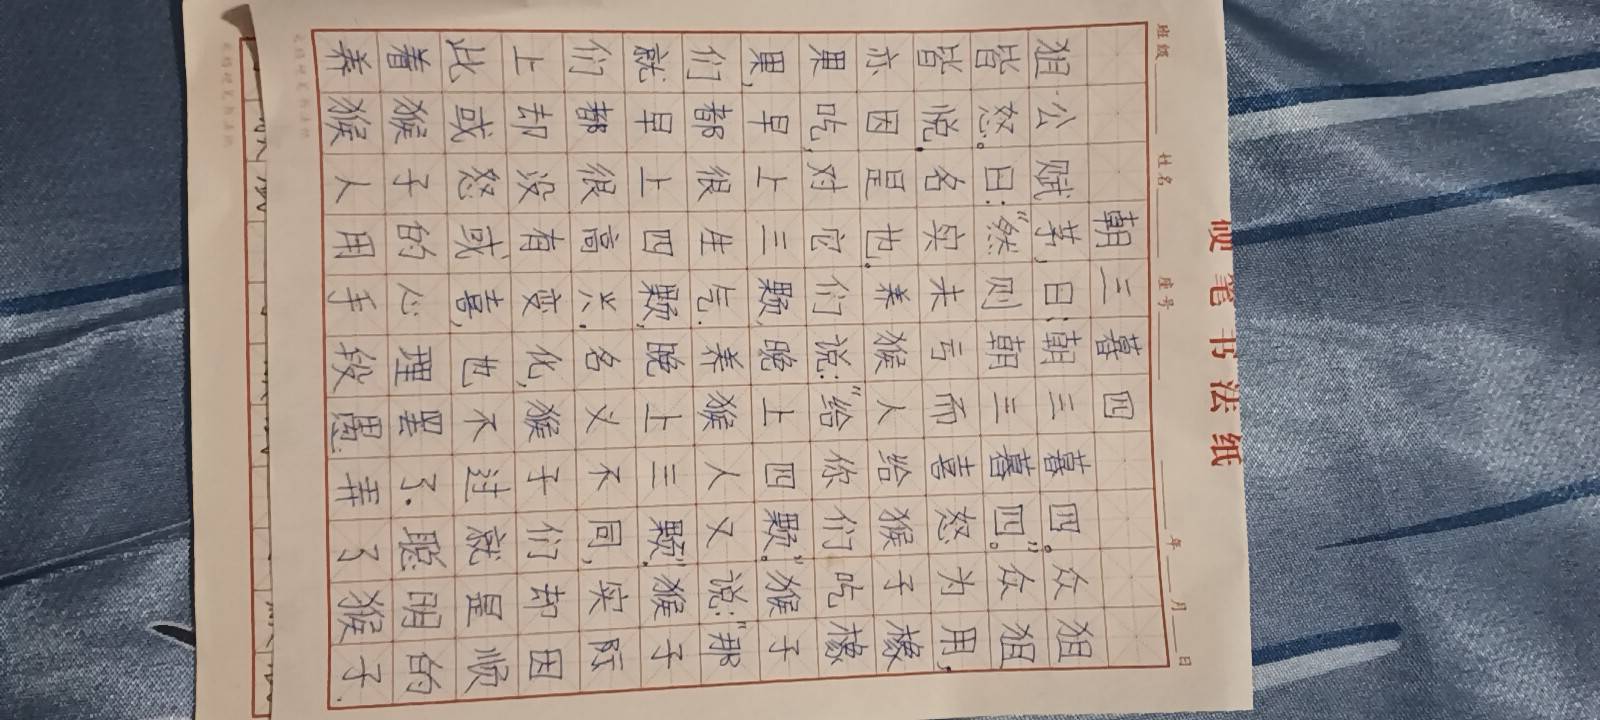 硬笔书法纸
班级 姓名 座号 年 月 日
朝三暮四
狙公赋芧,曰:朝三暮四。众狙
皆怒。曰:"然则朝三暮四。"众狙
皆悦,名实未亏而喜怒为用,
亦因是也.养猴人给猴子橡
果吃,对它们说:"给你们吃橡
果,早上三颗,晚上四颗。"猴子
们都很生气.养猴人又说:"那
就早上四颗,晚上三颗."猴子
们都很高兴.名义不同,实际
上却没有变化,猴子们却因
此或怒或喜,也不过就是顺
着猴子的心理罢了.聪明的
养猴人用手段愚弄了猴子.